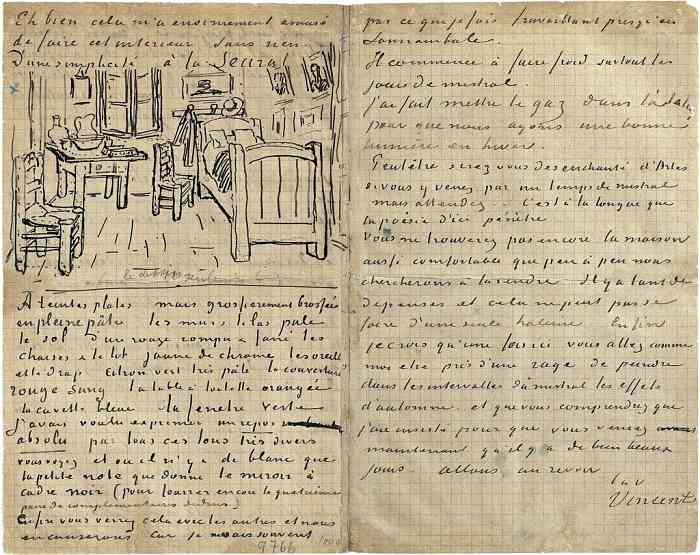 Eh bien cela m'a enormement amusé
de faire cet interieur sans rien
D'une simplicité à la Seurat
A teintes plates mais grossierement brossées
en pleine pâte les murs lilas pale
le sol d'un rouge rompu & fané les
chaises & le lit jaune de chrome les oreillers
et le drap citron vert très pâle la couverture
rouge sang la table à toilette orangée
la cuvette bleue la fenetre verte
J'avais voulu exprimer un repos
absolu par tous ces tons très divers
vous voyez et où il n'y a de blanc que
la petite note que donne le miroir à
cadre noir (pour fourrer encore la quatrième
paire de complementaires dedans)
Enfin vous verrez cela avec les autres et nous
en causerons car je ne sais souvent
9766
par ce que je fais travaillant presqu'en
somnambule.
Il commence à faire froid surtout les
jours de mistral.
J'ai fait mettre le gaz dans l'atelier
pour que nous ayons une bonne
lumière en hiver.
Peutêtre serez vous desenchanté d'Arles
si vous y venez par un temps de mistral
mais attendez .. C'est à la longue que
la poésie d'ici pénètre
Vous ne trouverez pas encore la maison
aussi comfortable que peu à peu nous
chercherons à la rendre. Il y a tant de
depenses et cela ne peut pas se
faire d'une seule haleine. Enfin
je crois qu'une fois ici vous allez comme
moi etre pris d'une rage de peindre
dans les intervalles du mistral les effets
d'automne. et que vous comprendrez que
j'ai insisté pour que vous veniez
maintenant qu'il y a de bien beaux
jours. allons au revoir
t. à v.
Vincent